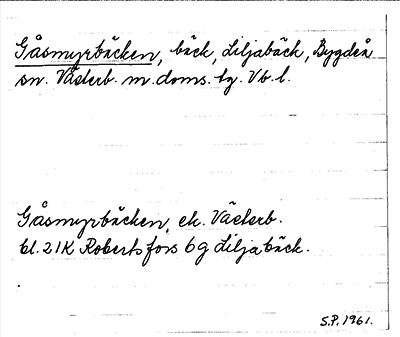 Gåsmyrbäcken, bäck, Liljabäck, Bygdeå
sn. Västerb. m. doms. tg. Vb. l.
Gåsmyrbäcken, ek. Västerb.
bl. 21K Robertsfors 6 g Liljabäck.
S.P. 1961.